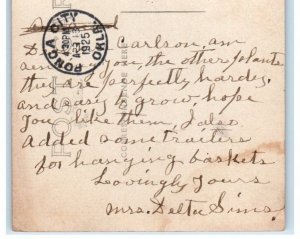 PONCA CITY
OKLA.
4 30 PM
1925
POST
CORRESPONDENCE HERE
Carlson, am
you, the other plants
they are perfectly hardy,
and easy to grow, hope
you like them, I also
added some trailers
for hanging baskets
Lovingly Yours
Mrs. Delta Sims.